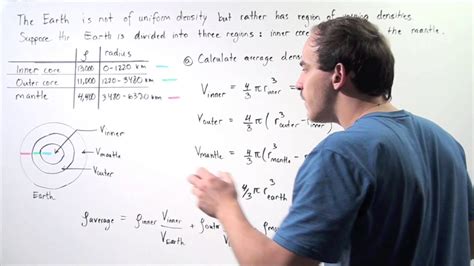 The Earth is not of uniform density but rather has region of varying densities.
Suppose the Earth is divided into three regions: inner core the mantle.
ρ radius
Inner core 13,000 0-1220 km
Outer core 11,000 1220-3480 km
mantle 4,400 3480-6370 km
a) Calculate average dens
V inner = 4/3 π r³ inner
V outer = 4/3 π (r³ outer - r³ inner
V mantle = 4/3 π (r³ mantle -
4/3 π r³ earth
V inner
V mantle
V outer
Earth
ρ average = ρ inner V inner / V Earth + ρ outer ρ m